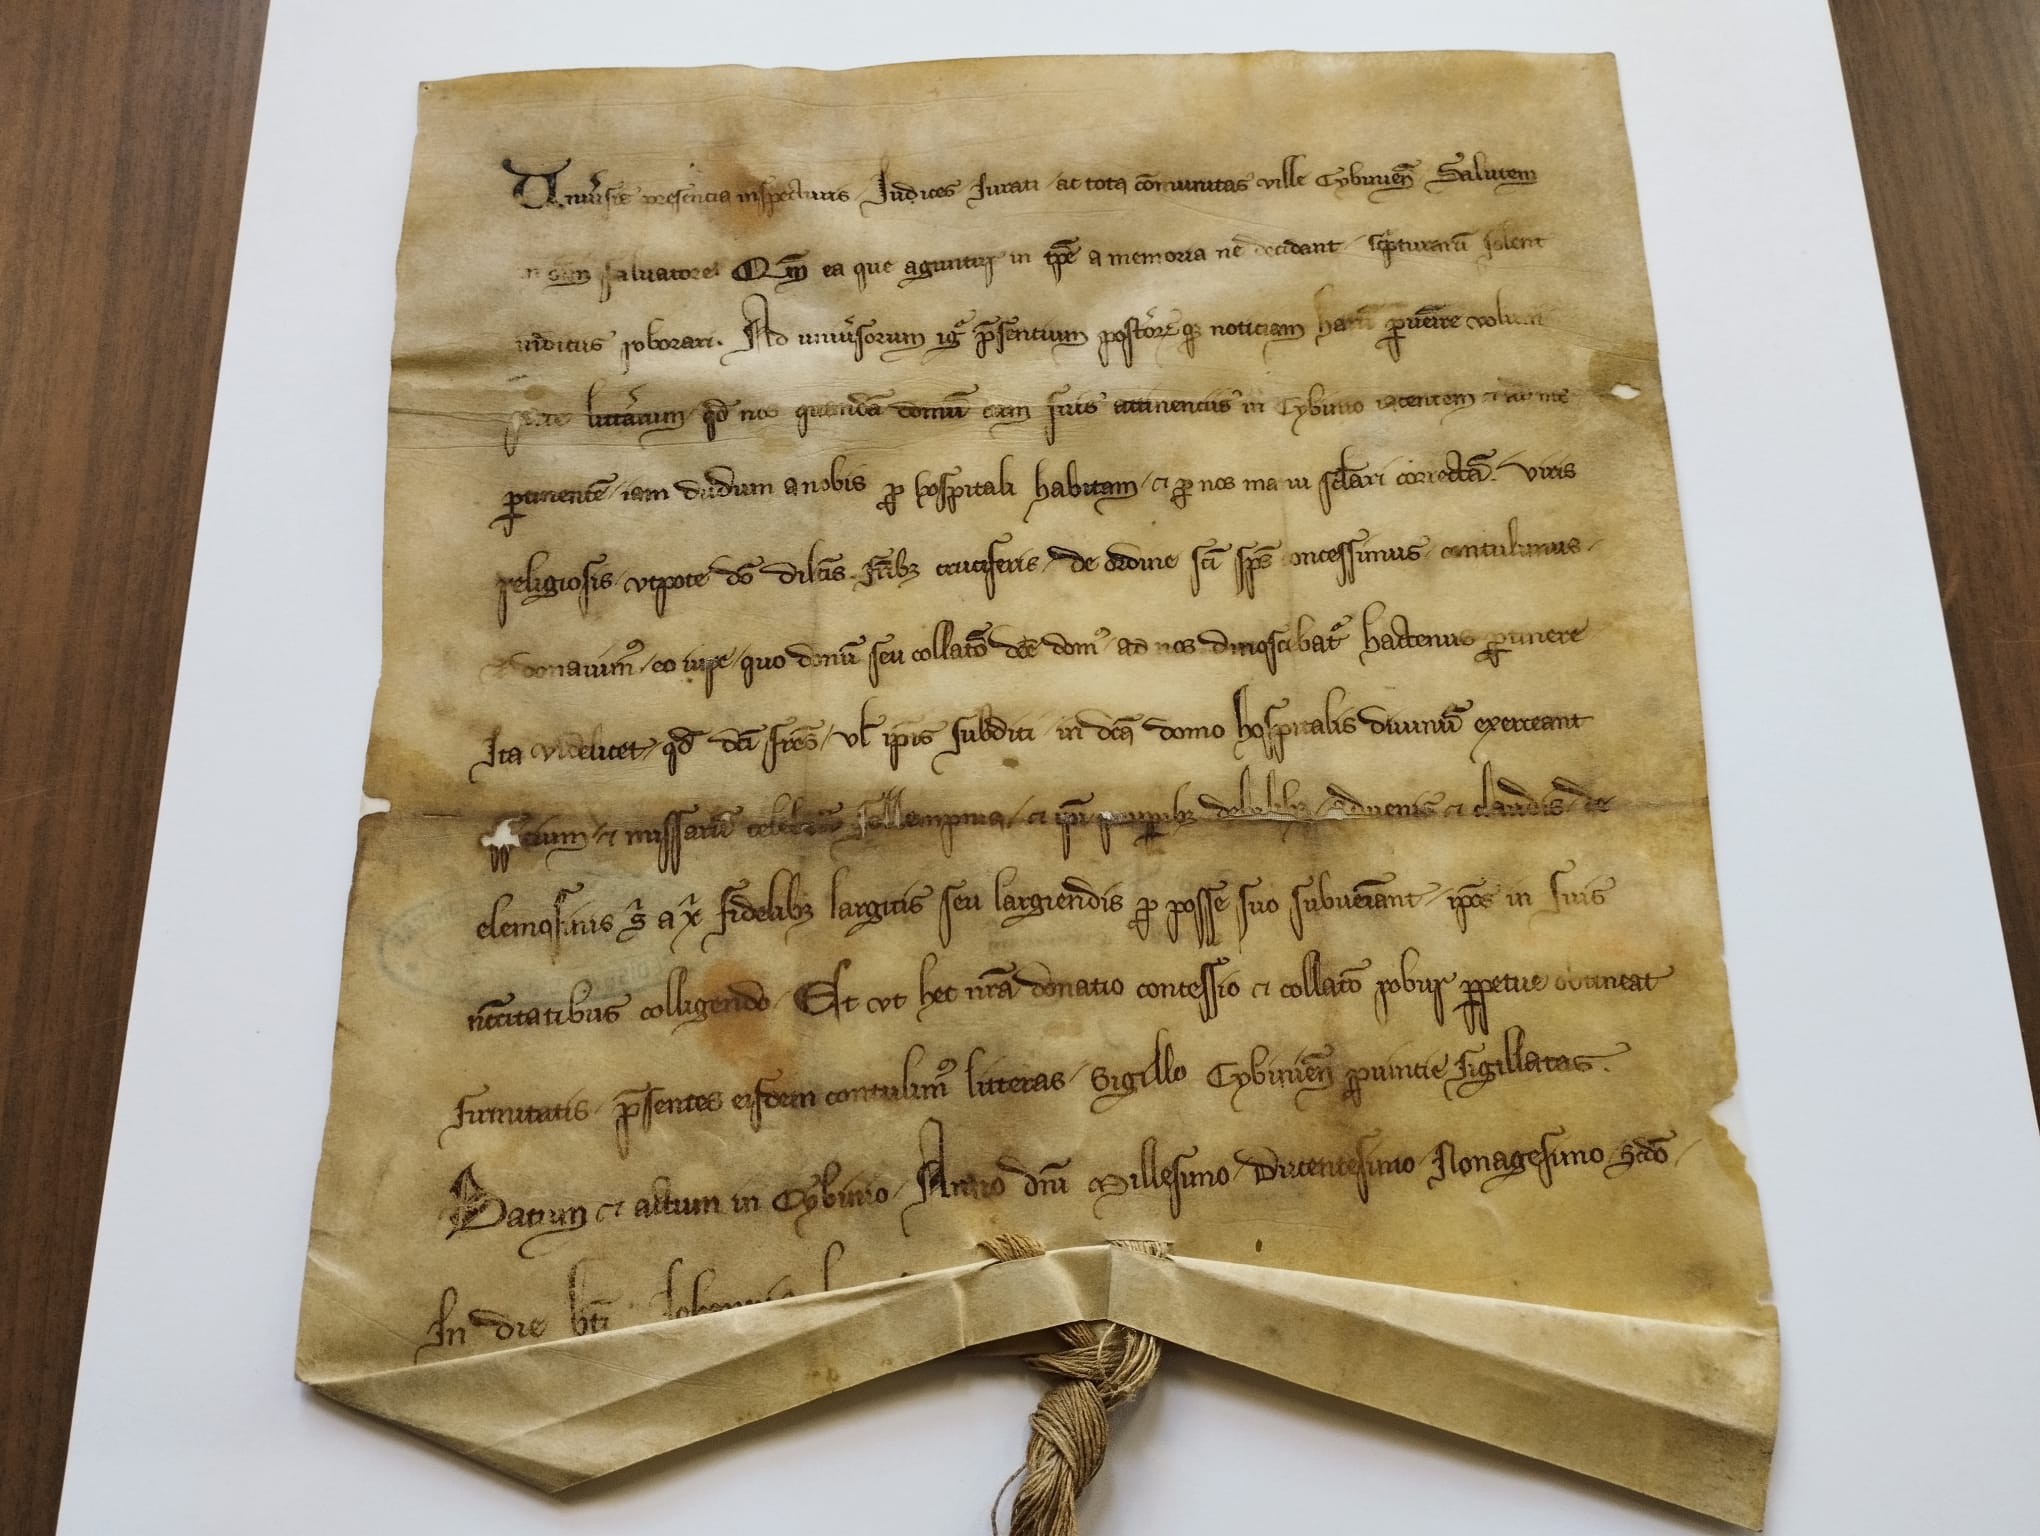 Univ͛sis presencia inspecturis / Judices Jurati / ac tota co̅munitas ville Cybinien̅ Salutem
in om̅i salvatore. Qm̅ ea que aguntur in tp̅e a memoria ne decidant / sc̅pturaru̅ solent
indiciis roborari. Ad univ͛sorum ig͛ p̅sentium post͛orꝝ qꝫ noticiam haru̅ ꝑveni̅re volum
litt͛arum / qd̅ nos quanda̅ domu̅ cum suis attinenciis in Cybinio iacentem
ꝑtinente̅ / iam dudum a nobis ꝓ hospitali habitam / ⁊ ꝑ nos manu corrects̅. viris
religiosis / utpote do̅ dilc̅is fr̅ibꝫ cruciferis / de ordine sc̅i sp̅s concessimus / contulimus /
donavimꝰ / eo iure / quo donu̅ seu collato̅ dc̅e domꝰ ad nos dinoscibat᷑ hactenus ꝑtinere
Ita videlicet / qd̅ dc̅i fr̅es / vl̅ ip̅is subditi / in dc̅a domo hospitalis divinu̅ exerceant
officium / ⁊ missaru̅ sollempnia / ⁊ ip̅i paupibꝫ debilibꝫ / advenis ⁊ claudis / de
elemosinis s̅ a xp̅ fidelibꝫ largitis seu largiendis ꝓ posse suo subvenia̅nt / ip̅os in suis
nec̅citatibus colligendo / Et ut hec nr̅a donatio concessio ⁊ collato̅ robur ꝑpetue obtineat
firmitatis / p̅sentes eisdem contulimꝰ litteras / Sigillo Cybinien̅ ꝓvincie sigillatas.
Datum ⁊ actum in Cybinio / Anno dn̅i Millesimo / Ducentesimo / Nonagesimo / Sc̅do /
In die bt̅i Johannis